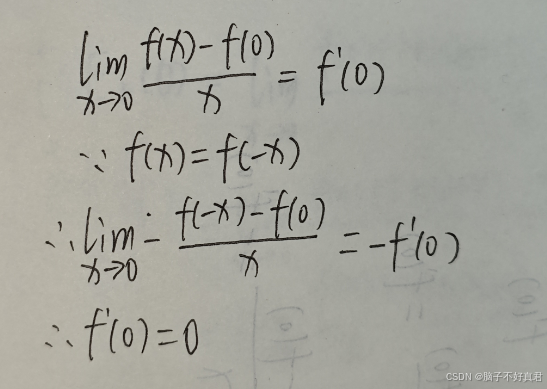 lim x→0 (f(x)-f(0))/x = f'(0)
∵ f(x)=f(-x)
∴ lim x→0 - (f(-x)-f(0))/x = -f'(0)
∴ f'(0)=0
CSDN @脑子不好真君